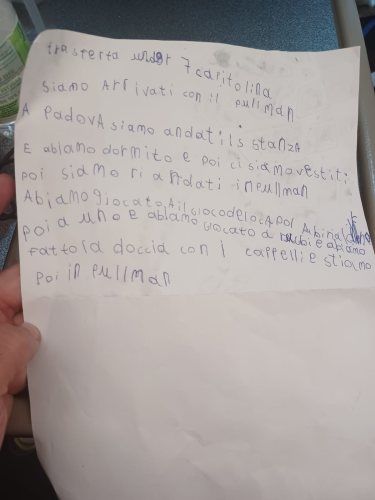 trasferta under 7 capitolina
siamo Arrivati con il pullman
A PadovA siamo andati i stanza
E abiamo dormito e poi ci siamo vestiti
poi siamo ri andati in pullman
Abiamo giocato Ail gioco de loca poi Abina
poi a uno e abiamo giocato a rubi e abiamo
fatto la doccia con i cappelli e stiamo
poi in pullman